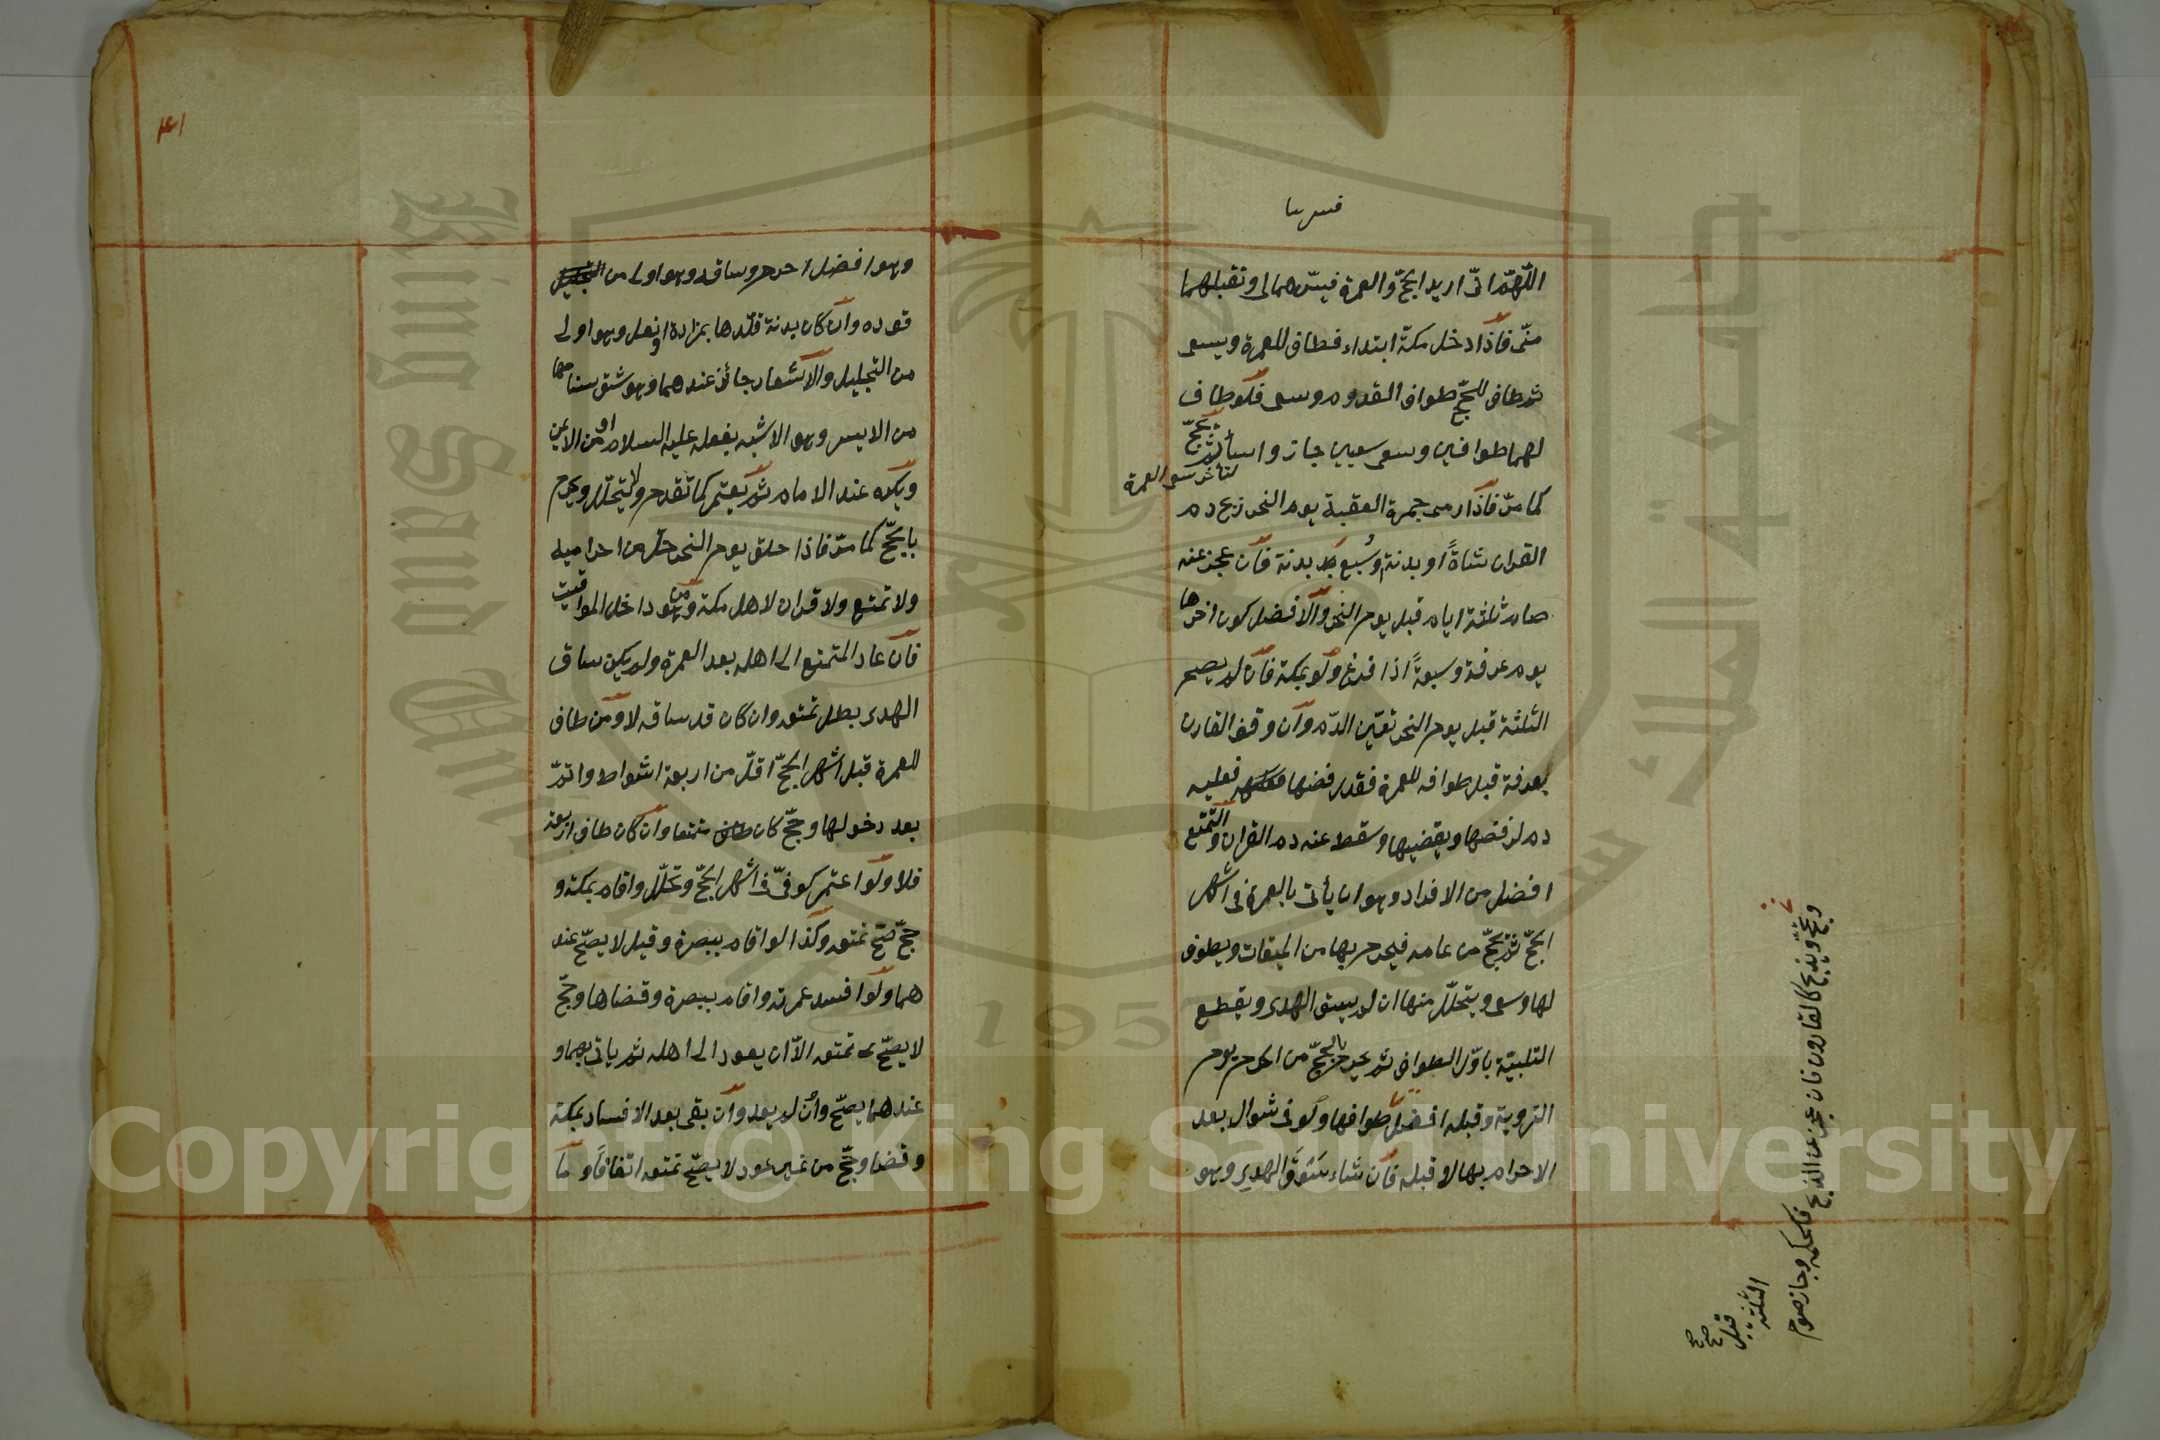 اللّهمّ انّى اريد الحجّ والعمرة فيسّرهما لى وتقبلهما
منّى فاذا دخل مكة ابتداء فطاف للعمرة ويسعى
ثم طاف للحجّ طواف القدوم وسعى فلو طاف
لهما طوافين وسعى سعيين جاز واساء ثم يحجّ
لتأخر سعى العمرة
كما مرّ فاذا رمى جمرة العقبة يوم النحر ذبح دم
القران شاةً او بدنة او سُبع بدنة فان عجز عنه
صام ثلثة ايام قبل يوم النحر والافضل كون اخرها
يوم عرفة وسبعةً اذا فرغ ولو بمكة فان لم يصم
الثلثة قبل يوم النحر تعيّن الدّم وان وقف القارن
بعرفة قبل طوافه للعمرة فقد رفضها فعليه
دم لرفضها ويقضيها وسقط عنه دم القران والتمتع
افضل من الافراد وهو ان يأتى بالعمرة فى اشهر
الحجّ ثم يحجّ من عامه فيحرم بها من الميقات ويطوف
لها وسعى ويتحلّل منها ان لم يسق الهدى ويقطع
التلبيّة باوّل الطواف ثم يحرم بالحجّ من الحرم يوم
التروية وقبله افضل طوافها ولو فى شوال بعد
الاحرام بها لا قبله فان شاء سَوْق الهدى وهو
ويحجّ ويذبح كالقارن فان عجز عن الذبح فكحكمه وجاز صوم
الثلثة
قبل
صح صح
٤١
وهو افضل احرم وساقه وهو اولى من
قوده وان كان بدنة قلّدها بمزادة او نعل وهو اولى
من التجليل والاشعار جائز عندهما وهو شق سنامها
من الايسر وهو الاشبه بفعله عليه السلام او من الايمن
ويكره عند الامام ثم يعتمر كما تقدم ولا يتحلّل ويحرم
بالحجّ كما مرّ فاذا حلق يوم النحر حلّ من احراميه
ولا تمتع ولا قران لاهل مكة ومن هو داخل المواقيت
فان عاد المتمتع الى اهله بعد العمرة ولم يكن ساق
الهدى بطل تمتعه وان كان قد ساقه لا ومن طاف
للعمرة قبل اشهر الحجّ اقلّ من اربعة اشواط واتمّ
بعد دخولها وحجّ كان متمتعا وان كان طاف اربعة
فلا ولو اعتمر كوفىّ فى اشهر الحجّ وتحلّل واقام بمكة و
حجّ صحّ تمتعه وكذا لو اقام ببصرة وقيل لا يصحّ عند
هما ولو افسد عمرته واقام ببصرة وقضاها وحجّ
لا يصحّ تمتعه الاّ ان يعود الى اهله ثم ياتى بهما و
عندهما يصحّ وان لم يعد وان بقى بعد الافساد بمكة
وقضا وحجّ من غير عود لا يصحّ تمتعه اتفاقًا وما
King Saud University
جامعة الملك سعود
1957
Copyright © King Saud University